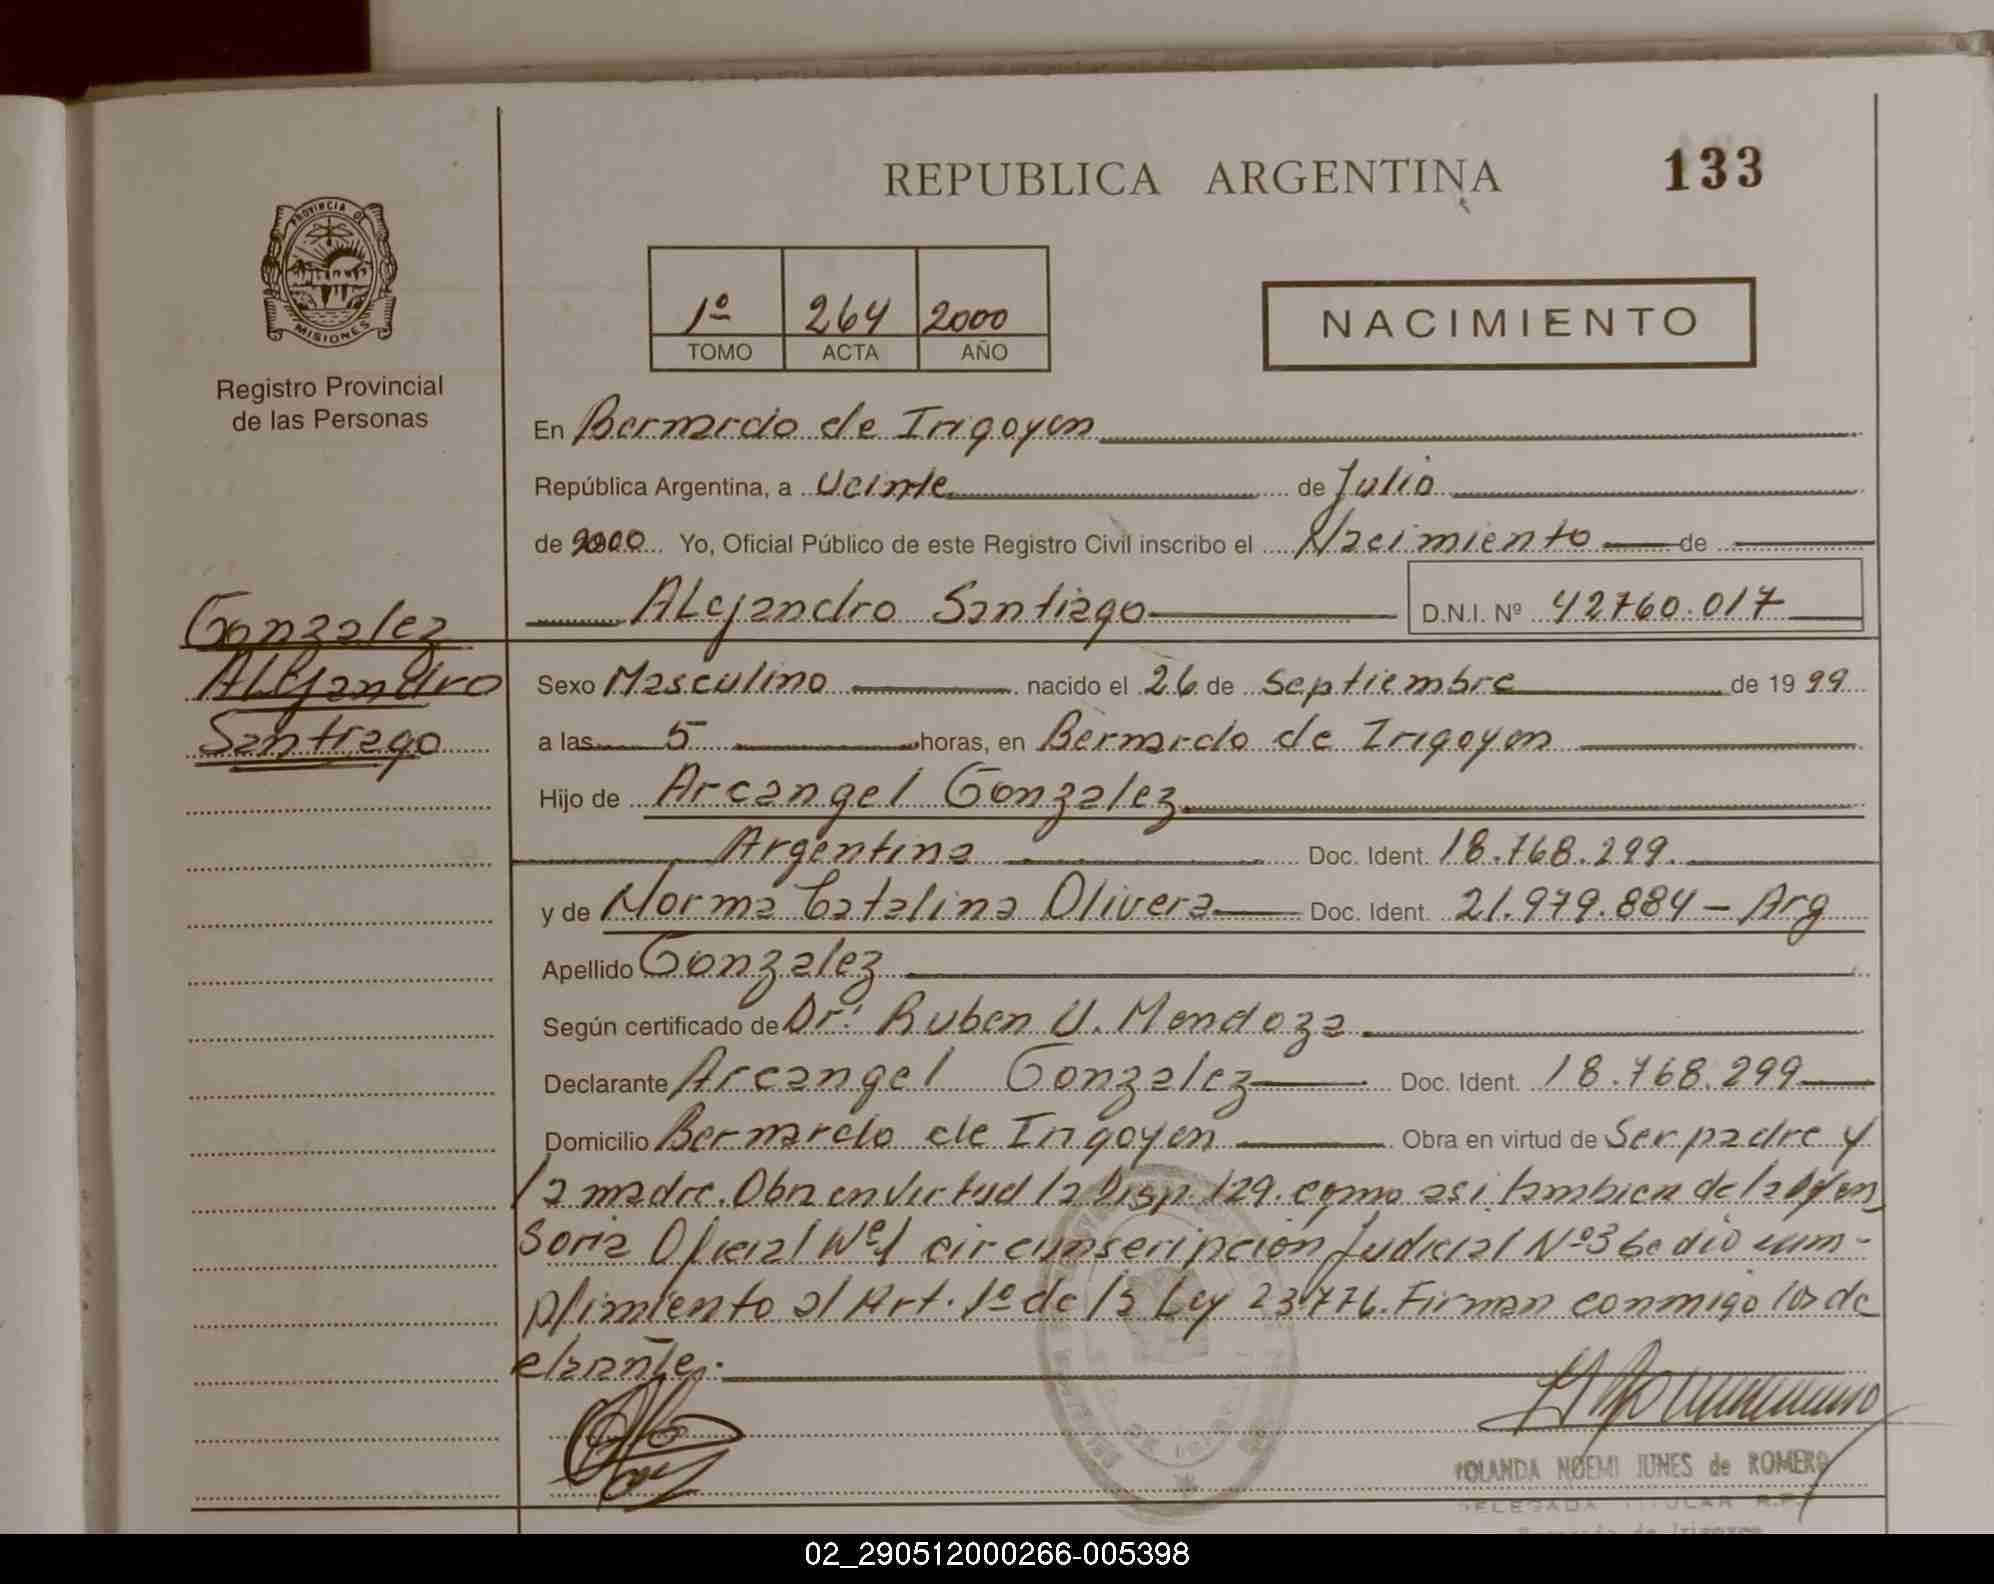 REPUBLICA ARGENTINA
133
PROVINCIA DE
MISIONES
Registro Provincial
de las Personas
1º 264 2000
TOMO ACTA AÑO
NACIMIENTO
En Bernardo de Irigoyen
República Argentina, a Veinte de Julio
de 2000 Yo, Oficial Público de este Registro Civil inscribo el Nacimiento de
Alejandro Santiago D.N.I. Nº 42760.017
Gonzalez
Alejandro
Santiago
Sexo Masculino nacido el 26 de Septiembre de 1999
a las 5 horas, en Bernardo de Irigoyen
Hijo de Arcangel Gonzalez
Argentina Doc. Ident. 18.768.299.
y de Norma Catalina Olivera Doc. Ident. 21.979.884 - Arg
Apellido Gonzalez
Según certificado de Dr. Ruben V. Mendoza
Declarante Arcangel Gonzalez Doc. Ident. 18.768.299
Domicilio Bernardo de Irigoyen Obra en virtud de Ser padre y
la madre. Obra en virtud la Disp. 129. como asi tambien de la
soria Oficial Nº1 circunscripcion Judicial Nº3 se dio cum-
plimiento al Art. 1º de la Ley 23.776. Firman conmigo los de
clarante.
YOLANDA NOEMI JUNES de ROMERO
DELEGADA TITULAR R.P.
Bernardo de Irigoyen
02_290512000266-005398